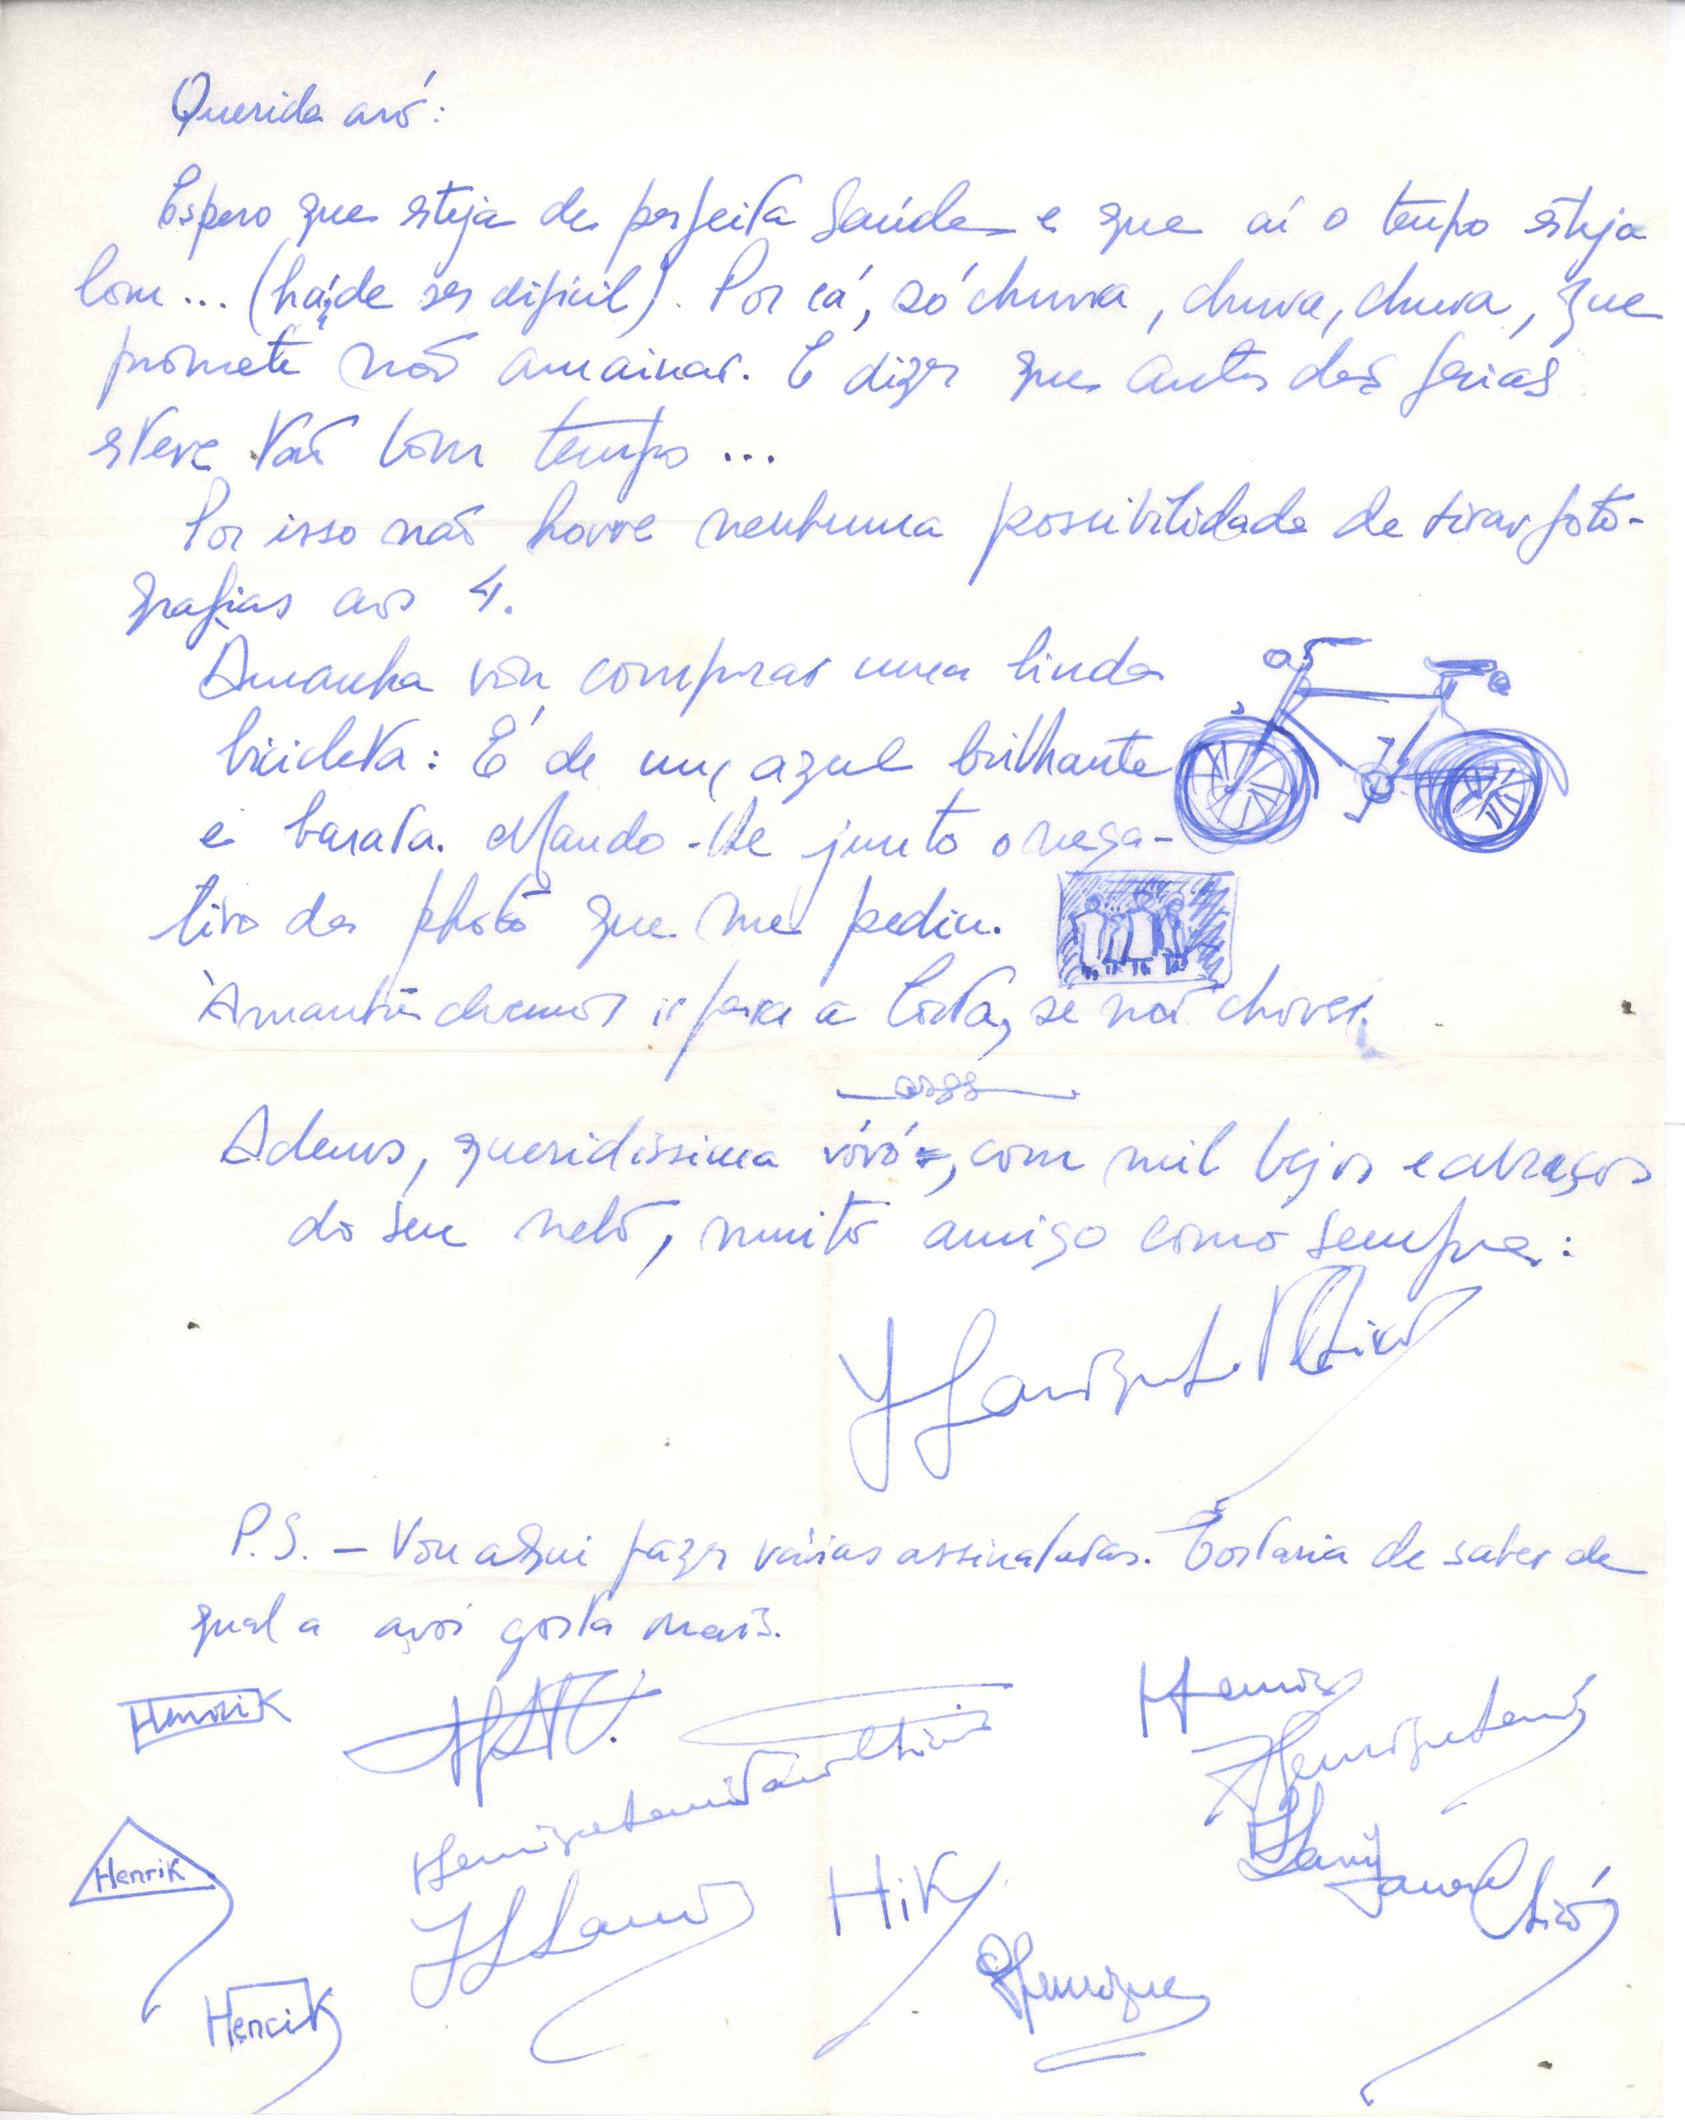 Querida avó:
Espero que esteja de perfeita saúde e que aí o tempo esteja
bom... (há de ser difícil). Por cá, só chuva, chuva, chuva, que
promete não amainar. E dizer que antes das férias
esteve tão bom tempo...
Por isso não houve nenhuma possibilidade de tirar foto-
grafias aos 4.
Amanhã vou comprar uma linda
bicicleta: É de um azul brilhante
e barata. Mando-lhe junto o nega-
tivo da photo que me pediu.
Amanhã devemos ir para a Costa, se não chover.
Adeus, queridíssima vóvó, com mil bejos e abraços
do seu neto, muito amigo como sempre:
P.S. - Vou aqui fazer várias assinaturas. Gostaria de saber de
qual a avó gosta mais.
Henrik
Henrik
Hik
Henrik
Henrique